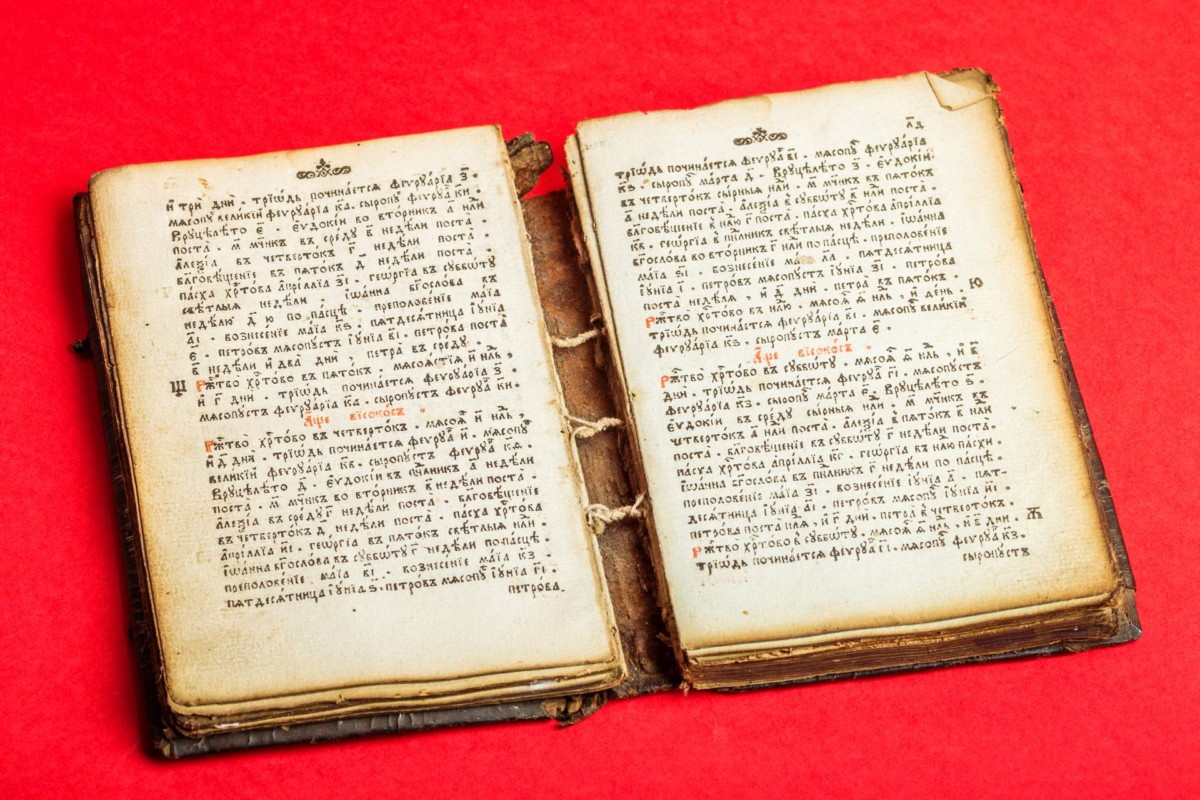 и҆ трѝ дни̑ . трїѡ́дь почина́етсѧ феѵрꙋа́рїа з҃ .
мѧсопꙋ́ вели́кїй феѵрꙋа́рїа к҃а . сыропꙋ́ феѵрꙋа к҃и .
Врꙋцѣлѣто є҃ . є҆ѵдокі́и во вто́рник а҃ нл҃и
поста̀ . м҃ мч҃нкъ въ сре́дꙋ в҃ недѣ́ли поста̀ .
а҆ле́ѯїа въ четверто́къ г҃ недѣ́ли поста̀ .
бл҃говѣ́щенїе въ пѧто́къ д҃ недѣ́ли поста̀
па́сха хр҃то́ва а҆прі́ллїа з҃і . гео́ргїа въ сꙋббѡ́тꙋ
свѣ́тлыѧ недѣ́ли . і҆ѡа́нна бг҃осло́ва въ
недѣ́лю д҃ ю по па́сцѣ . преполове́нїе ма́їа
а҃і . вознесе́нїе ма́їа к҃ѕ . пѧтдесѧ́тница і҆ꙋ́нїа
є҃ . петро́въ мѧсопꙋ́стъ і҆ꙋ́нїа в҃і . петро́ва поста̀
в҃ недѣ́ли и҆ два̀ дни̑ , петра̀ въ сре́дꙋ .
Щ Рж҃тво̀ хр҃то́во въ пѧто́къ , мѧсоѧ́стїѧ и҃ нл҃ь ,
и҆ г҃ дни̑ . трїѡ́дь почина́етсѧ феѵрꙋа́рїа з҃ .
мѧсопꙋ́стъ феѵрꙋа́рїа к҃а . сыропꙋ́стъ феѵрꙋа к҃и .
А҆́ще високо́съ .
Рж҃тво̀ хр҃то́во въ четверто́къ . мѧсоѧ и҃ нл҃ь ,
и҆ д҃ дни̑ . трїѡ́дь почина́етсѧ феѵрꙋа и҃ . мѧсопꙋ́
вели́кїй феѵрꙋа́рїа к҃в . сыропꙋ́стъ феѵрꙋа к҃ѳ .
Врꙋцѣлѣто д҃ . є҆ѵдокі́и въ пн҃лникъ а҃ недѣ́ли
поста̀ . м҃ мч҃нкъ во вто́рникъ в҃ недѣ́ли поста̀ .
а҆ле́ѯїа въ сре́дꙋ г҃ недѣ́ли поста̀ . бл҃говѣ́щенїе
въ четверто́къ д҃ недѣ́ли поста̀ . па́сха хр҃то́ва
а҆прі́ллїа и҃і . гео́ргїа въ пѧто́къ свѣ́тлыѧ нл҃и .
і҆ѡа́нна бг҃осло́ва въ сꙋббѡ́тꙋ г҃ недѣ́ли по па́сцѣ .
преполове́нїе ма́їа в҃і . вознесе́нїе ма́їа к҃з .
пѧтдесѧ́тница і҆ꙋ́нїа ѕ҃ . петро́въ мѧсопꙋ́ і҆ꙋ́нїа г҃і .
петро́ва .
л҃д
трїѡ́дь почина́етсѧ феѵрꙋа в҃і . мѧсопꙋ́ феѵрꙋа́рїа
к҃ѕ . сыропꙋ́ ма́рта д҃ . Врꙋцѣлѣто з҃ . є҆ѵдокі́и
въ четверто́къ сы́рныѧ нл҃и . м҃ мч҃нкъ въ пѧто́къ
а҃ недѣ́ли поста̀ . а҆ле́ѯїа въ сꙋббѡ́тꙋ в҃ нл҃и поста̀ .
бл҃говѣ́щенїе в нл҃ю г҃ поста̀ . па́сха хр҃то́ва а҆прі́ллїа
к҃в . гео́ргїа в пн҃лникъ свѣ́тлыѧ недѣ́ли . і҆ѡа́нна
бг҃осло́ва во вто́рникъ г҃ нл҃и по па́сцѣ . преполове́нїе
ма́їа ѕ҃і . вознесе́нїе ма л҃а . пѧтдесѧ́тница
і҆ꙋ́нїа і҃ . петро́въ мѧсопꙋ́стъ і҆ꙋ́нїа з҃і . петро́ва
поста̀ недѣ́лѧ , и҆ д҃ дни̑ . петра̀ въ пѧто́къ .
Рж҃тво̀ хр҃то́во въ нл҃ю . мѧсоѧ ѳ҃ нл҃ь , и҆ де́нь . Ю
трїѡ́дь почина́етсѧ феѵрꙋа́рїа в҃і . мѧсопꙋ́ вели́кїй
феѵрꙋа́рїа к҃ѕ . сыропꙋ́стъ ма́рта є҃ .
А҆́ще високо́съ .
Рж҃тво̀ хр҃то́во въ сꙋббѡ́тꙋ . мѧсоѧ ѳ҃ нл҃ь , и҆ в҃
дни̑ . трїѡ́дь почина́етсѧ феѵрꙋа г҃і . мѧсопꙋ́стъ
феѵрꙋа́рїа к҃з . сыропꙋ́ ма́рта є҃ . Врꙋцѣлѣто ѕ҃ .
є҆ѵдокі́и , въ сре́дꙋ сы́рныѧ нл҃и . м҃ мч҃нкъ въ
четверто́къ а҃ нл҃и поста̀ . а҆ле́ѯїа в пѧто́къ в҃ нл҃и
поста̀ . бл҃говѣ́щенїе въ сꙋббѡ́тꙋ г҃ недѣ́ли поста̀ .
па́сха хр҃то́ва а҆прі́ллїа к҃г . гео́ргїа въ нл҃ю па́схи .
і҆ѡа́нна бг҃осло́ва въ пн҃лникъ г҃ недѣ́ли по па́сцѣ .
преполове́нїе ма́їа з҃і . вознесе́нїе і҆ꙋ́нїа а҃ . пѧт-
десѧ́тница і҆ꙋ́нїа а҃і . петро́въ мѧсопꙋ́ і҆ꙋ́нїа и҃і .
петро́ва поста̀ нл҃ѧ , и҆ г҃ дни̑ . петра̀ в четверто́къ .
Рж҃тво̀ хр҃то́во в сꙋббѡ́тꙋ . мѧсоѧ ѳ҃ нл҃ь , и҆ в҃ дни̑ . Ѫ
трїѡ́дь почина́етсѧ феѵрꙋа г҃і . мѧсопꙋ́ феѵрꙋа к҃з .
сыропꙋ́стъ